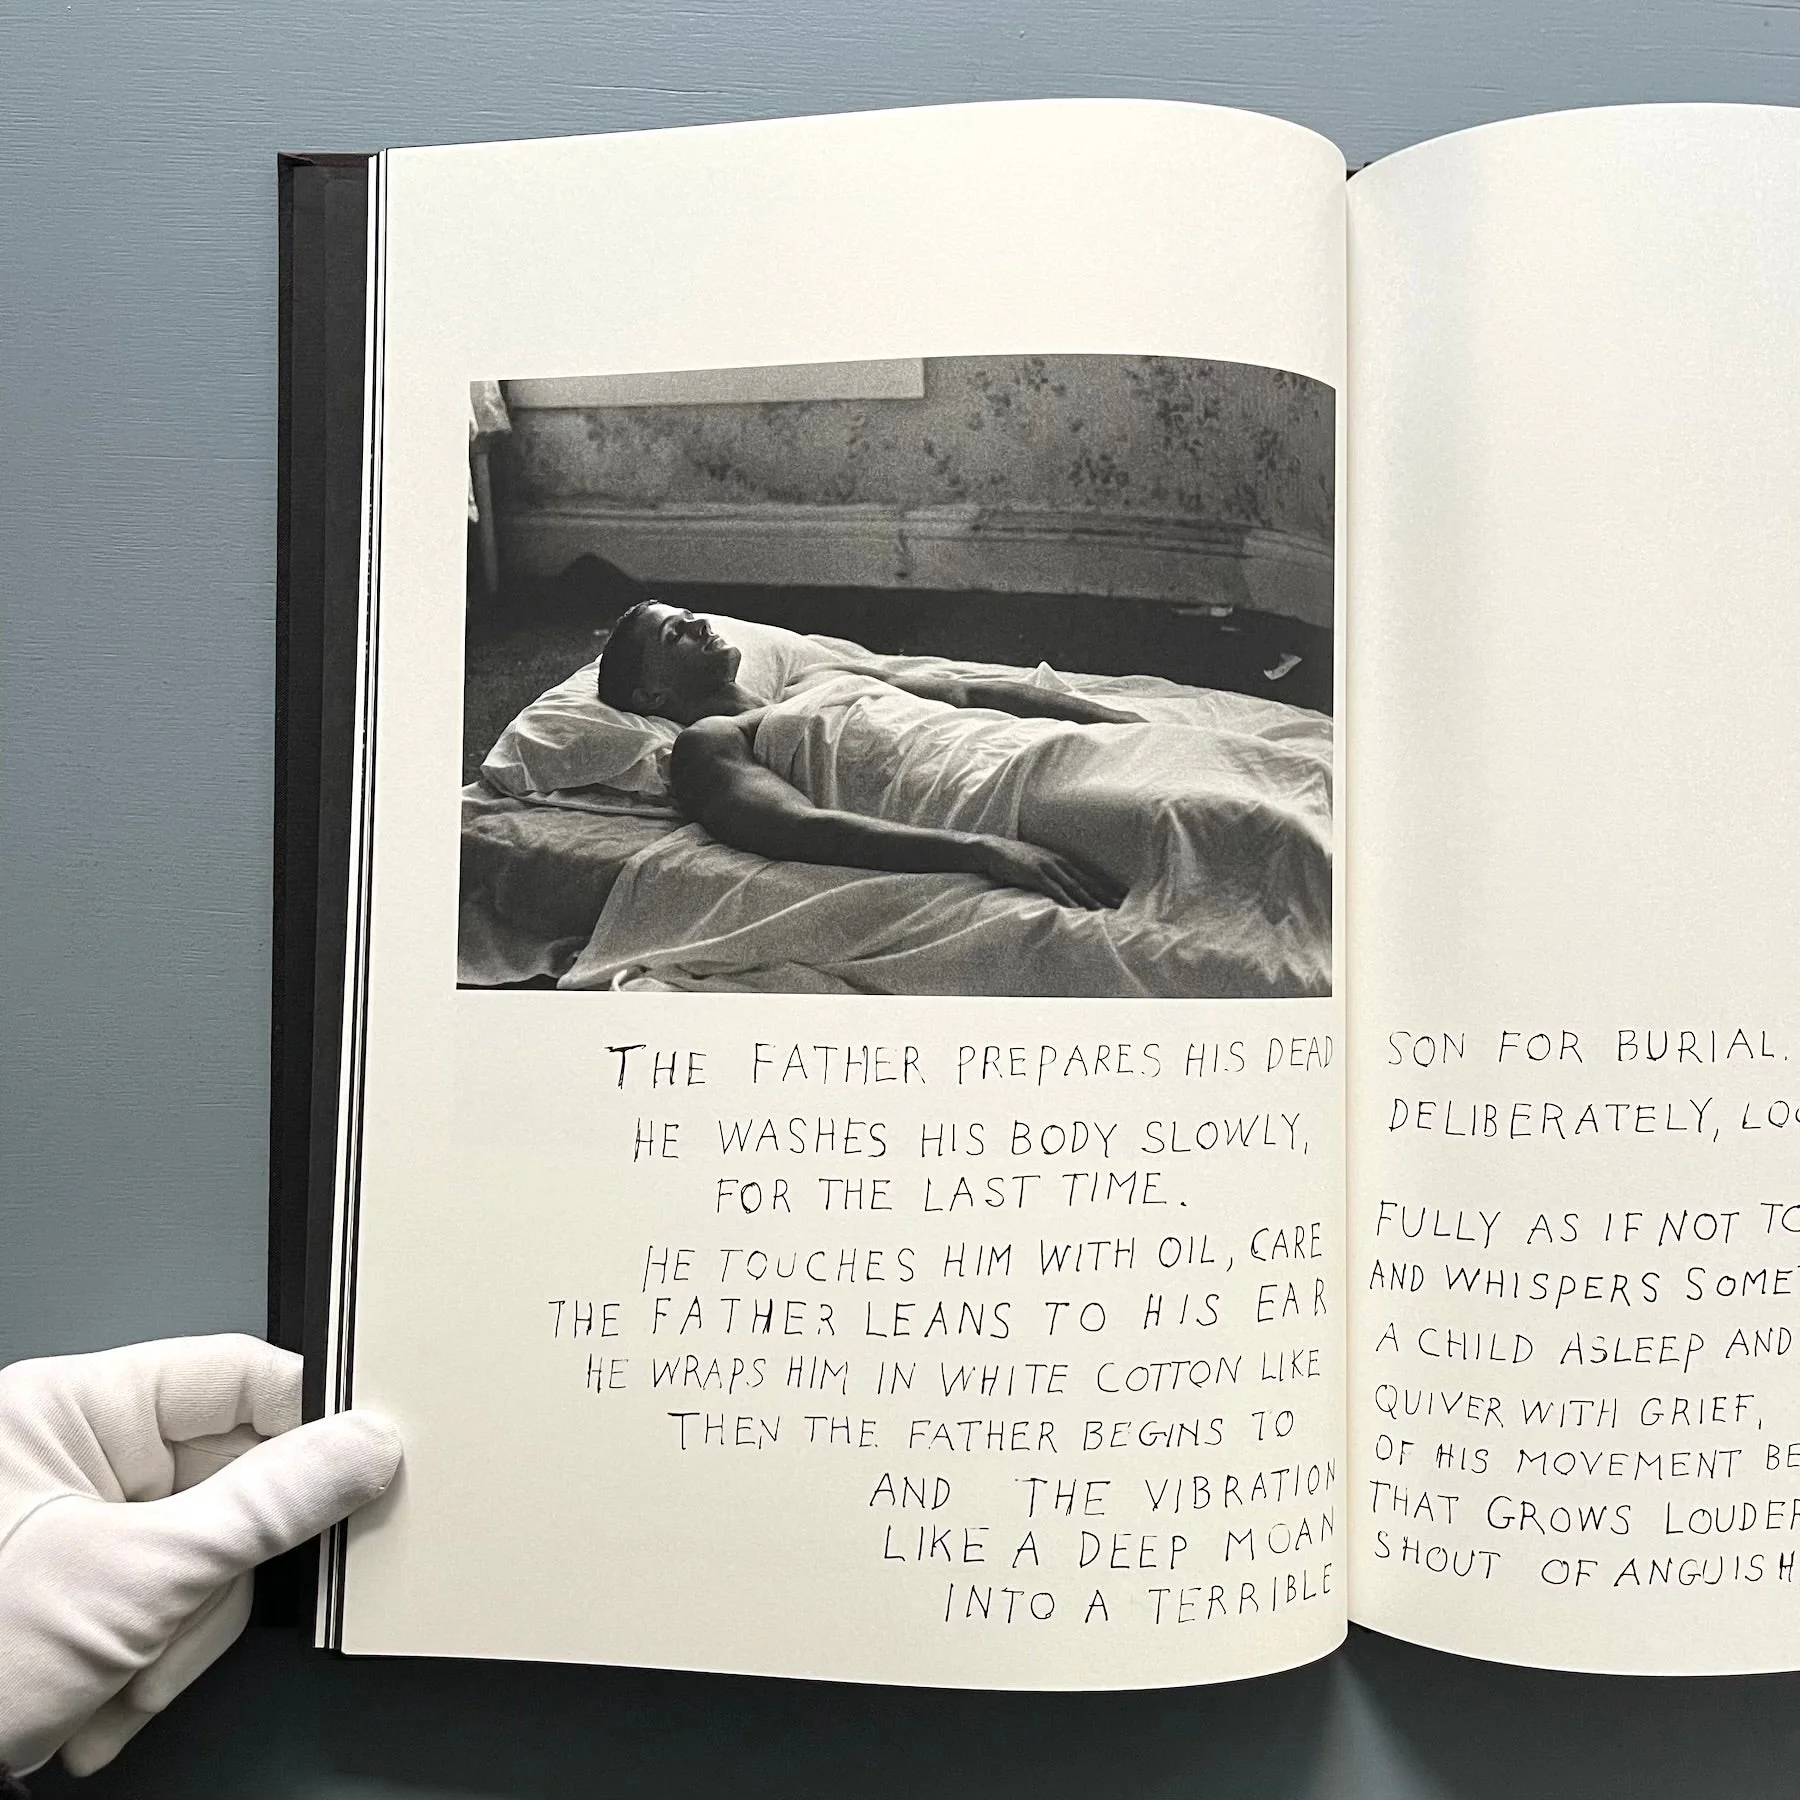 THE FATHER PREPARES HIS DEAD SON FOR BURIAL.
HE WASHES HIS BODY SLOWLY, DELIBERATELY,
FOR THE LAST TIME.
HE TOUCHES HIM WITH OIL, CARE FULLY AS IF NOT
THE FATHER LEANS TO HIS EAR AND WHISPERS
HE WRAPS HIM IN WHITE COTTON LIKE A CHILD ASLEEP AND
THEN THE FATHER BEGINS TO QUIVER WITH GRIEF,
AND THE VIBRATION OF HIS MOVEMENT
LIKE A DEEP MOAN THAT GROWS LOUDER
INTO A TERRIBLE SHOUT OF ANGUISH